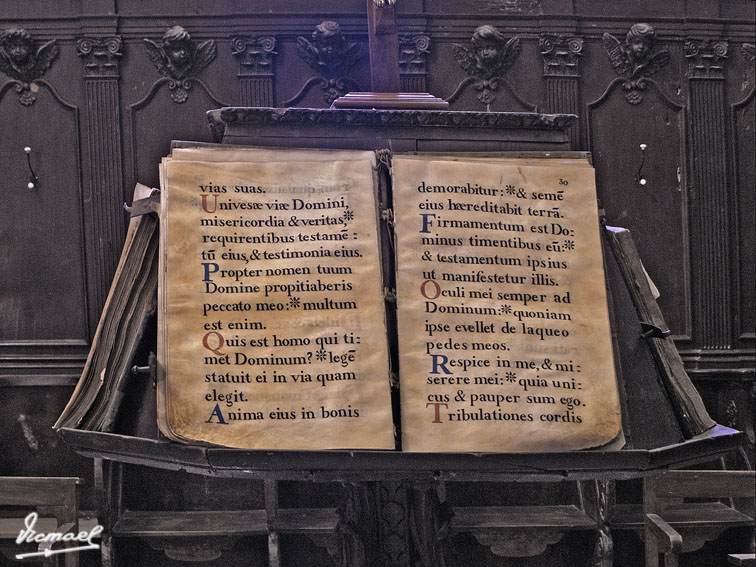 vias suas.
Univesæ viæ Domini,
misericordia & veritas,*
requirentibus testamē-
tū eius, & testimonia eius.
Propter nomen tuum
Domine propitiaberis
peccato meo: * multum
est enim.
Quis est homo qui ti-
met Dominum? * legē
statuit ei in via quam
elegit.
Anima eius in bonis
30
demorabitur: * & semē
eius hæreditabit terrā.
Firmamentum est Do-
minus timentibus eū: *
& testamentum ipsius
ut manifestetur illis.
Oculi mei semper ad
Dominum: * quoniam
ipse evellet de laqueo
pedes meos.
Respice in me, & mi-
serere mei: * quia uni-
cus & pauper sum ego.
Tribulationes cordis
Vicmael